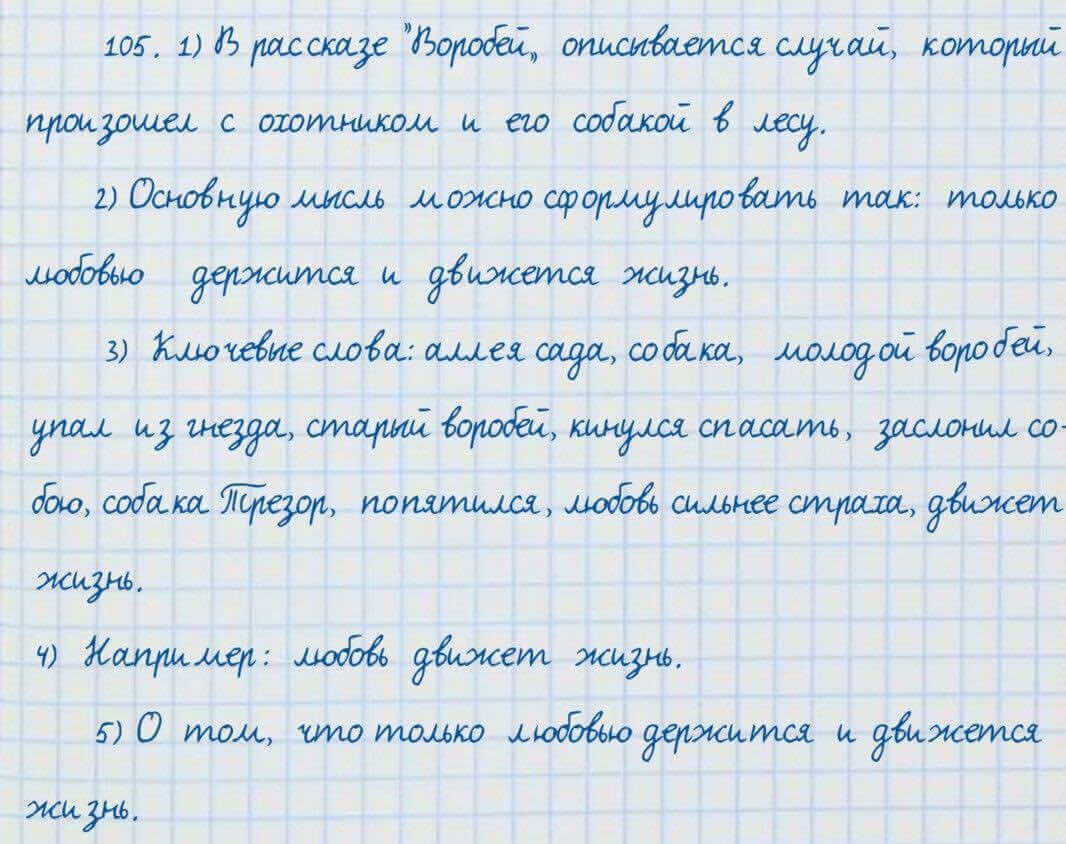 105. 1) В рассказе "Воробей„ описывается случай, который
произошел с охотником и его собакой в лесу.
2) Основную мысль можно сформулировать так: только
любовью держится и движется жизнь.
3) Ключевые слова: аллея сада, собака, молодой воробей,
упал из гнезда, старый воробей, кинулся спасать, заслонил со-
бою, собака Трезор, попятился, любовь сильнее страха, движет
жизнь.
4) Например: любовь движет жизнь.
5) О том, что только любовью держится и движется
жизнь.